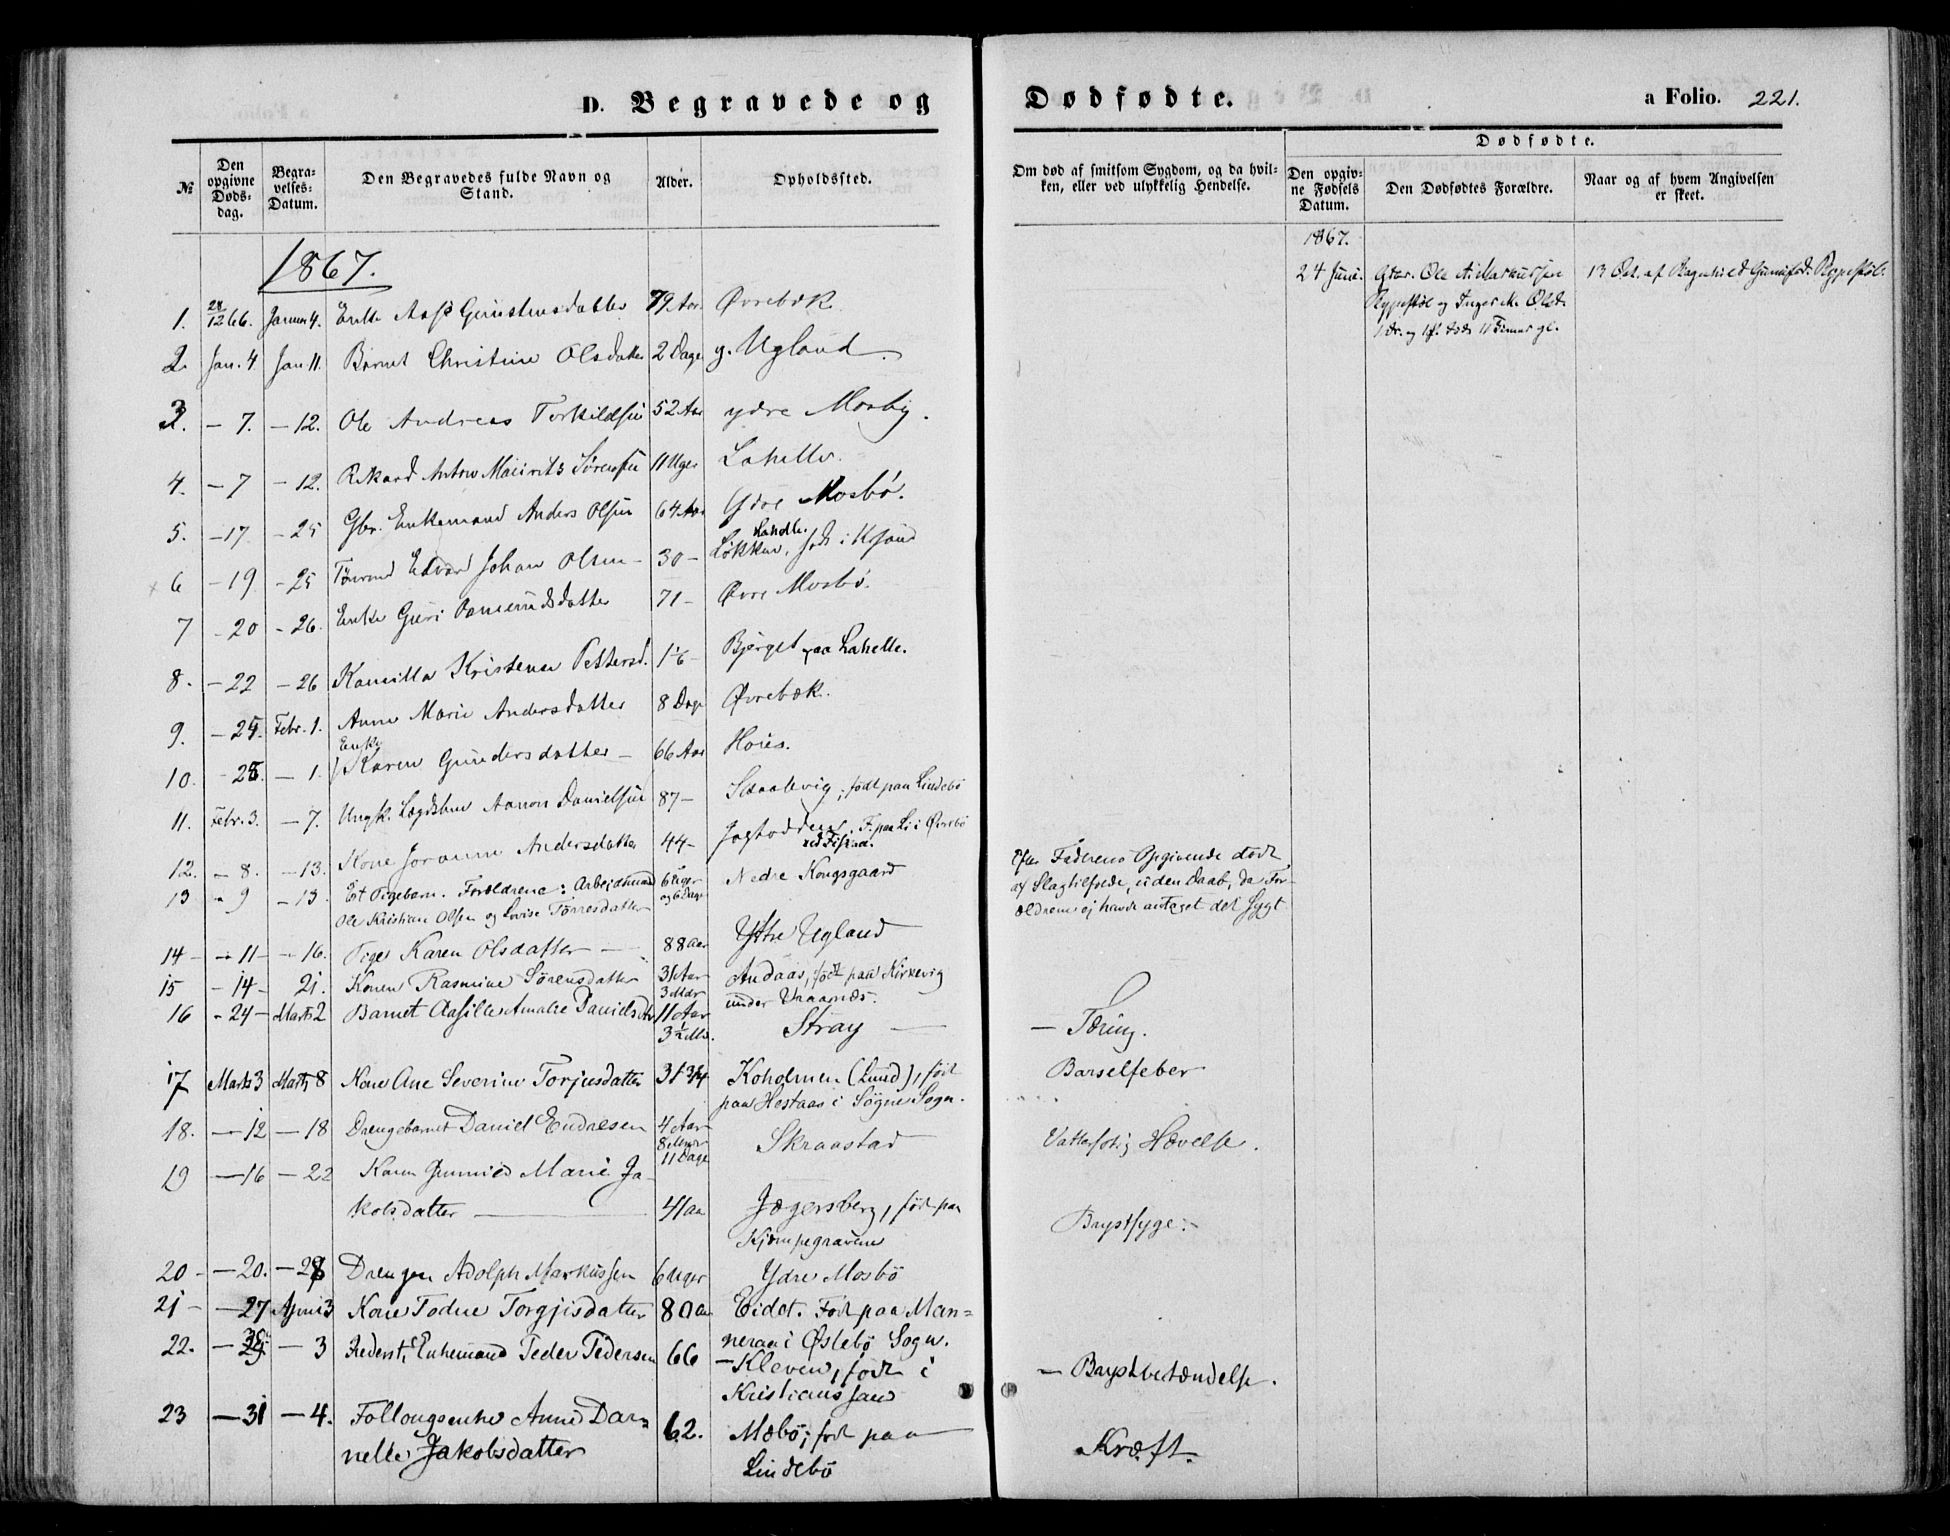 D. Begravede og Dødfødte. a Folio. 221.
Dødfødte.
№ Den opgivne Døds-dag. Begra-velses-Datum. Den Begravedes fulde Navn og Stand. Alder. Opholdssted. Om død af smitsom Sygdom, og da hvil-ken, eller ved ulykkelig Hendelse. Den opgiv-ne Fødsels Datum. Den Dødfødtes Forældre. Naar og af hvem Angivelsen er skeet.
1867.
1867.
24 Juni. Ole A. Markussen 13 Oct. af Ragnhild
og
1. 28/12 66. Januar 4. Enke Gunstensdatter 79 Aar Øvrebæk.
2. Jan. 4 Jan 11. Barnet Christine Olsdatter 2 Dage y. Ugland.
3. – 7. – 12. Ole Andreas Torkildsen 52 Aar ydre Mosby.
4. – 7 – 12. Rikard Anton Mauritz Sørensen 11 Uger Lahelle.
5. – 17. – 25 Gbr. Enkemand Anders Olsen 64 Aar Ydre Mosbø.
Lahelle.
6 – 19 – 25 Edvard Johan Olsen – 30 – Løkken, født i Krsand
7 – 20 – 26. Enke Guri Aamundsdatter 71 – Øvre Mosbø.
8. – 22 – 26 Kamilla Kristense Pettersd. Bjerget paa Lahelle.
9. – 25. Febr. 1. Anne Marie Andersdatter 8 Dage Øvrebæk.
Enke
10. – 25. – 1. Karen Gundersdatter – 66 Aar Hoies.
11. Febr. 3. – 7. Ungk. Lægdslem Aanon Danielsen 87 – Skaalevig, født paa Lindebø
12. – 8. – 13. Kone Joranne Andersdatter 44 – F. paa Li i Øvrebø
ved Fiskaa.
13 – 9 – 13. Et Pigebarn. Forældrene: Arbeidsmand 6 Uger Nedre Kongsgaard Efter Faderens Opgivende død
Ole Kristian Olsen og Lovise Tørresdatter og 6 Dage af Slagtilfælde, uden Daab, da For-
ældrene ej havde antaget det sygt
14 – – 11 – – 16. Pige Karen Olsdatter – 88 Aar Ytre Ugland
15 – 14 – 21. Konen Rasmine Sørensdatter 31 Aar Andaas, født paa Kirkevig
3 Mdr under Vraanæs.
16 – 24 – Marts 2 Barnet Aasille Amalie Danielsdtr 11 Aar Stray – – Tæring.
3 ½ Md.
17 Marts 3 Marts 8 Kone Ane Severine Torjusdatter 31 3/4 Koholmen (Lund), født Barselfeber
paa Hestaas i Søgne Sogn.
18. – 12 – 18 Drengebarnet Daniel Endresen 4 Aar Skraastad Vattersotig Hævelse.
8 Mdr
11 Dage
19 – 16 – 22 Karen Gunnild Marie Ja-
kobsdatter – 41 Aar Jægersberg, født paa Brystsyge. –
Kjempegravene
20 – – 20. – 28 Drengen Adolph Markussen 6 Uger Ydre Mosbø
21 – – 27 April 3 Kone Todne Torgjisdatter 80 Aar Eidet. Født paa Man=
neraa i Øslebø Sogn.
22. – 29 – 3 Føderst, Enkemand Peder Pedersen 66 – Kleven, født i – Brystbetændelse.
Kristianssand
23 – 31 – 4. Follougsenke Anne Dar= 62. Mæbø, født paa Kræft.
nelle Jakobsdatter Lindebø